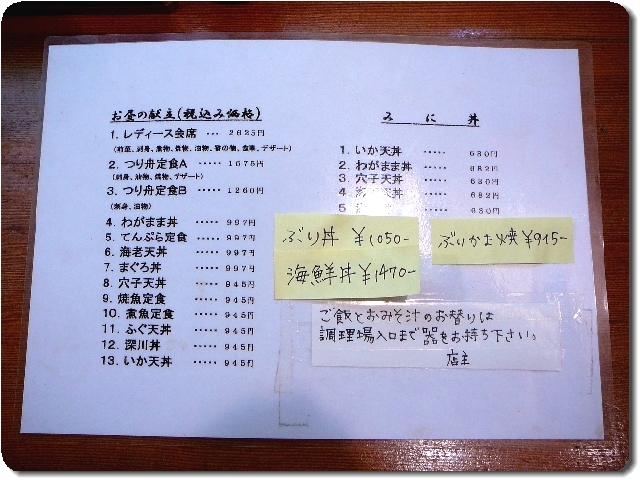 お昼の献立(税込み価格)
1. レディース会席 ‥‥ 2625円
2. つり舟定食A ‥‥‥ 1675円
(刺身、油物、焼物、デザート)
3. つり舟定食B ‥‥‥ 1260円
(刺身、油物)
4. わがまま丼 ‥‥‥ 997円
5. てんぷら定食 ‥‥‥ 997円
6. 海老天丼 ‥‥‥ 997円
7. まぐろ丼 ‥‥‥ 997円
8. 穴子天丼 ‥‥‥ 945円
9. 焼魚定食 ‥‥‥ 945円
10. 煮魚定食 ‥‥‥ 945円
11. ふぐ天丼 ‥‥‥ 945円
12. 深川丼 ‥‥‥ 945円
13. いか天丼 ‥‥‥ 945円
みに丼
1. いか天丼 ‥‥‥ 630円
2. わがまま丼 ‥‥‥ 682円
3. 穴子天丼 ‥‥‥ 630円
4. ‥‥‥ 682円
5.
ぶり丼 ¥1050-
海鮮丼 ¥1470-
ぶりかま焼 ¥915-
ご飯とおみそ汁のお替りは
調理場入口まで器をお持ち下さい。
店主